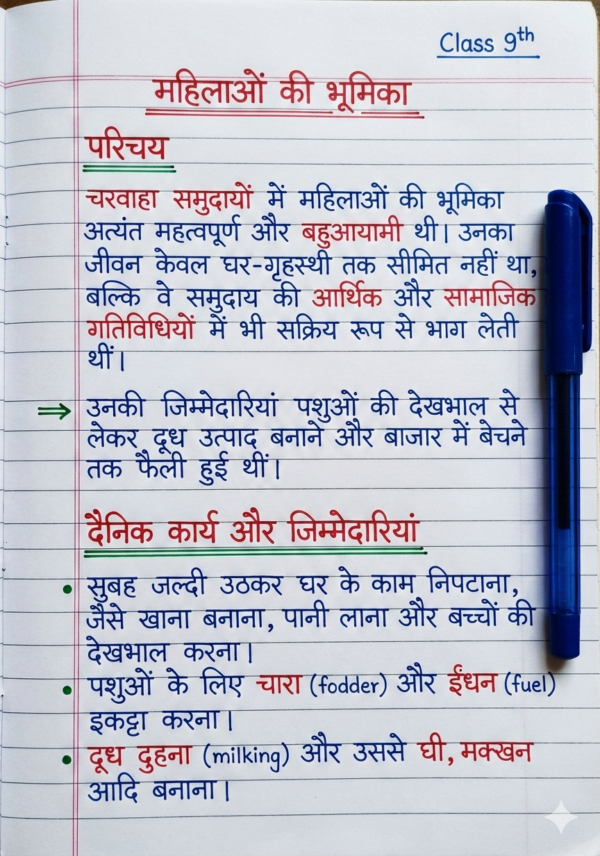 Class 9th
महिलाओं की भूमिका
परिचय
चरवाहा समुदायों में महिलाओं की भूमिका
अत्यंत महत्वपूर्ण और बहुआयामी थी। उनका
जीवन केवल घर-गृहस्थी तक सीमित नहीं था,
बल्कि वे समुदाय की आर्थिक और सामाजिक
गतिविधियों में भी सक्रिय रूप से भाग लेती
थीं।
⇒ उनकी जिम्मेदारियां पशुओं की देखभाल से
लेकर दूध उत्पाद बनाने और बाजार में बेचने
तक फैली हुई थीं।
दैनिक कार्य और जिम्मेदारियां
• सुबह जल्दी उठकर घर के काम निपटाना,
जैसे खाना बनाना, पानी लाना और बच्चों की
देखभाल करना।
• पशुओं के लिए चारा (fodder) और ईंधन (fuel)
इकट्टा करना।
• दूध दुहना (milking) और उससे घी, मक्खन
आदि बनाना।